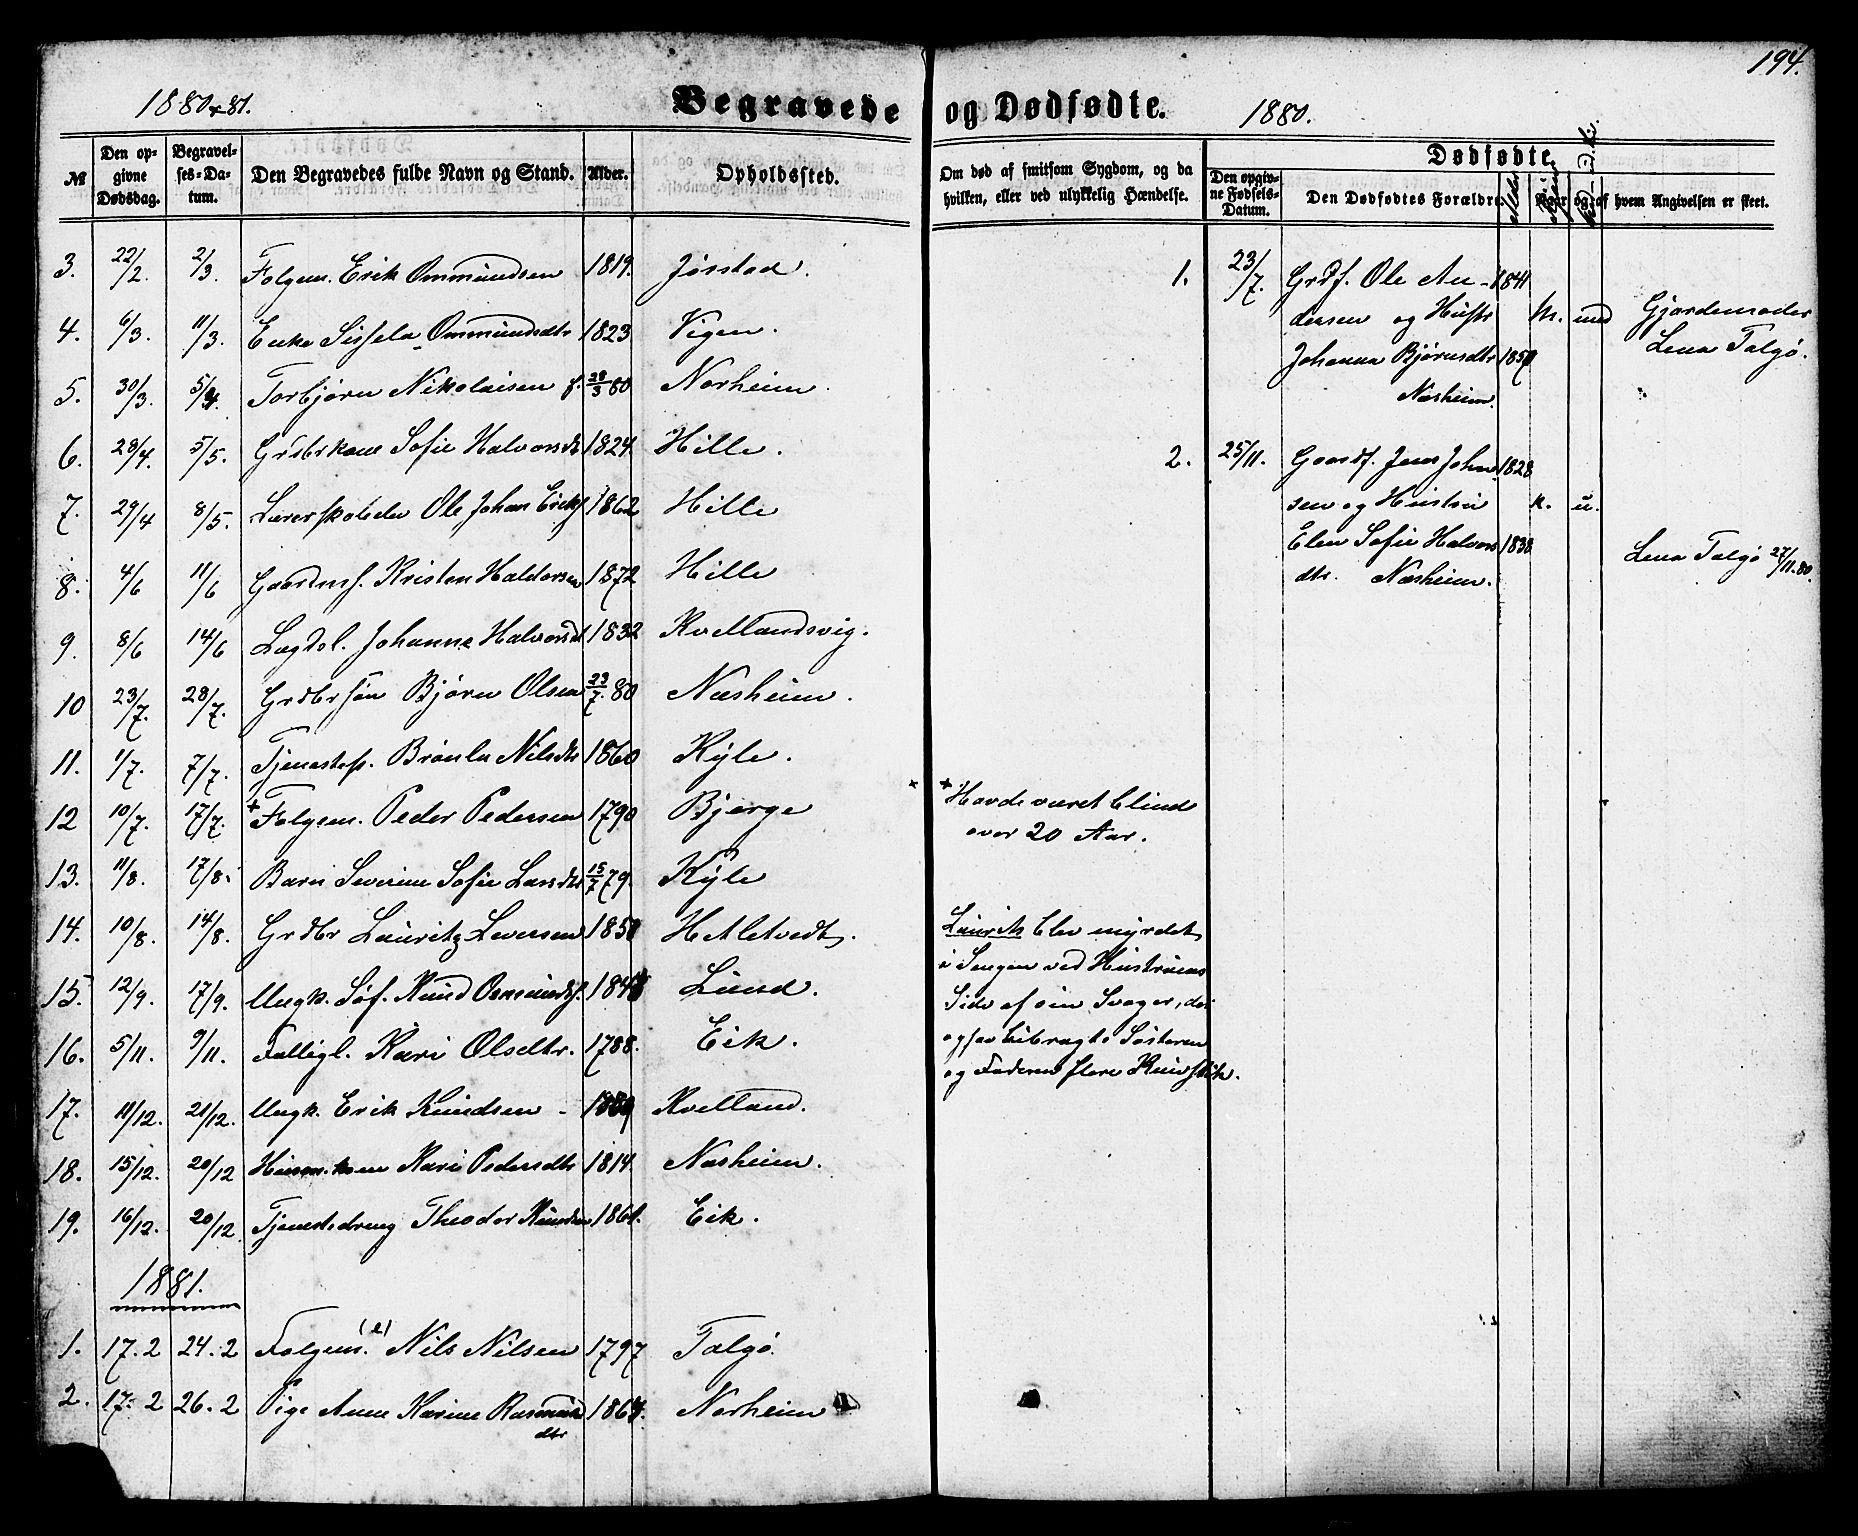 194.
1880 & 81.
Begravede og Dødfødte.
1880.
№
Den opgivne Dødsdag.
Begravelses-Datum.
Den Begravedes fulde Navn og Stand.
Alder.
Opholdssted.
Om død af smitsom Sygdom, og da hvilken, eller ved ulykkelig Hændelse.
Dødfødte.
Den opgivne Fødsels-Datum.
Den Dødfødtes Forældre.
og af hvem Angivelsen er skeet.
3. 22/2. 2/3. Folgem. Erik Ommundsen 1819. Jøsstad.
4. 6/3. 11/3. Enke Sissela Ommundsdtr 1823 Vigen.
5. 30/3. 5/4. Torbjørn Nikolaisen f. 28/3 80 Norheim.
6. 28/4. 5/5. Grdbrkone Sofie Halvorsdt 1824. Hille.
7. 29/4 8/5. Ole Johan Eriks. 1862 Hille
8. 4/6 11/6 Gaardms. Kristen Haldorsen 1872 Hille
9. 8/6 14/6 Lægdsl. Johanne Halvorsdt 1832 Kvellandsvig.
10 23/7. 28/7. Grdbrsøn Bjørn Olsen 23/7. 80 Næsheim.
11. 1/7. 7/7. Tjenestep. Brønla Nilsdtr 1860 Kyle.
12 10/7. 17/7. + Folgem. Peder Pedersen 1790 Bjerge
+ Havde været blind
over 20 Aar.
13. 11/8. 17/8. Barn Severine Sofie Larsdtr 15/7 79. Kyle
14. 10/8. 14/8. Grdbr Lauritz Leversen 1850 Hetletvedt.
Laurits blev myrdet
i Sengen ved Hustruens
Side af sin Svoger, der
ogsaa bibragte Søsteren
og Faderen flere Knivstik.
15. 12/9. 17/9. Ungk. Søf. Knud Ommunds. 1848 Lund.
16. 5/11. 9/11. Fattigl. Kari Olsdtr. 1788. Eik.
17. 11/12. 21/12. Ungk. Erik Knudsen - Kvelland.
18. 15/12. 20/12 Husm.kone Kari Pedersdtr 1814. Næsheim.
19. 16/12. 20/12. Tjenestedreng Theodor Knudsen 1861. Eik.
1881.
1. 17.2 24.2 Folgem. (e) Nils Nilsen 1797 Talgø.
2. 17.2 26.2 Pige Anne Karine Rasmus
dtr 1864. Norheim
1. 23/7. Grdf. Ole An- 1841
dersen og Hustr
Johanna Bjørnsdtr 1850
Næsheim.
M. und Gjordemoder
Lena Talgø.
2. 25/11. Gaardf. Jens John 1828
sen og Hustru
Elen Sofie Halvors 1838
dtr. Næsheim.
k. u.
Lena Talgø 27/11.80.